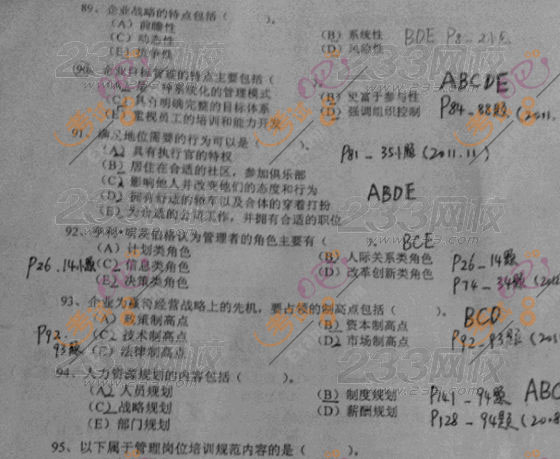 89、企业战略的特点包括（ ）。
（A）前瞻性 （B）系统性 BDE P8-21题
（C）动态性 （D）风险性
（E）抗争性
90、企业目标管理的特点主要包括（ ）。 ABCDE
（A）是一种系统化的管理模式 （B）更富于参与性
（C）具有明确完整的目标体系 （D）强调组织控制 P84-88题（2011.
（E）重视员工的培训和能力开发
91、满足地位需要的行为可以是（ ）。 P81-35小题（2011.11）
（A）具有执行官的特权
（B）居住在合适的社区，参加俱乐部
（C）影响他人并改变他们的态度和行为 ABDE
（D）拥有舒适的轿车以及合体的穿着打扮
（E）为合适的公司工作，并拥有合适的职位
92、亨利·明茨伯格认为管理者的角色主要有（ ）。 BCE
（A）计划类角色 （B）人际关系类角色 P26-14题
P26.14小题 （C）信息类角色 （D）改革创新类角色 P74-34题
（E）决策类角色
93、企业为赢得经营战略上的先机，要占领的制高点包括（ ） BCD
（A）政策制高点 （B）资本制高点
P92. 93题 （C）技术制高点 （D）市场制高点 P92-93题
（E）法律制高点
94、人力资源规划的内容包括（ ）。
（A）人员规划 （B）制度规划 P141-94题 ABC
（C）战略规划 （D）薪酬规划 P128-94题
（E）部门规划
95、以下属于管理岗位培训规范内容的是（ ）。
233网校